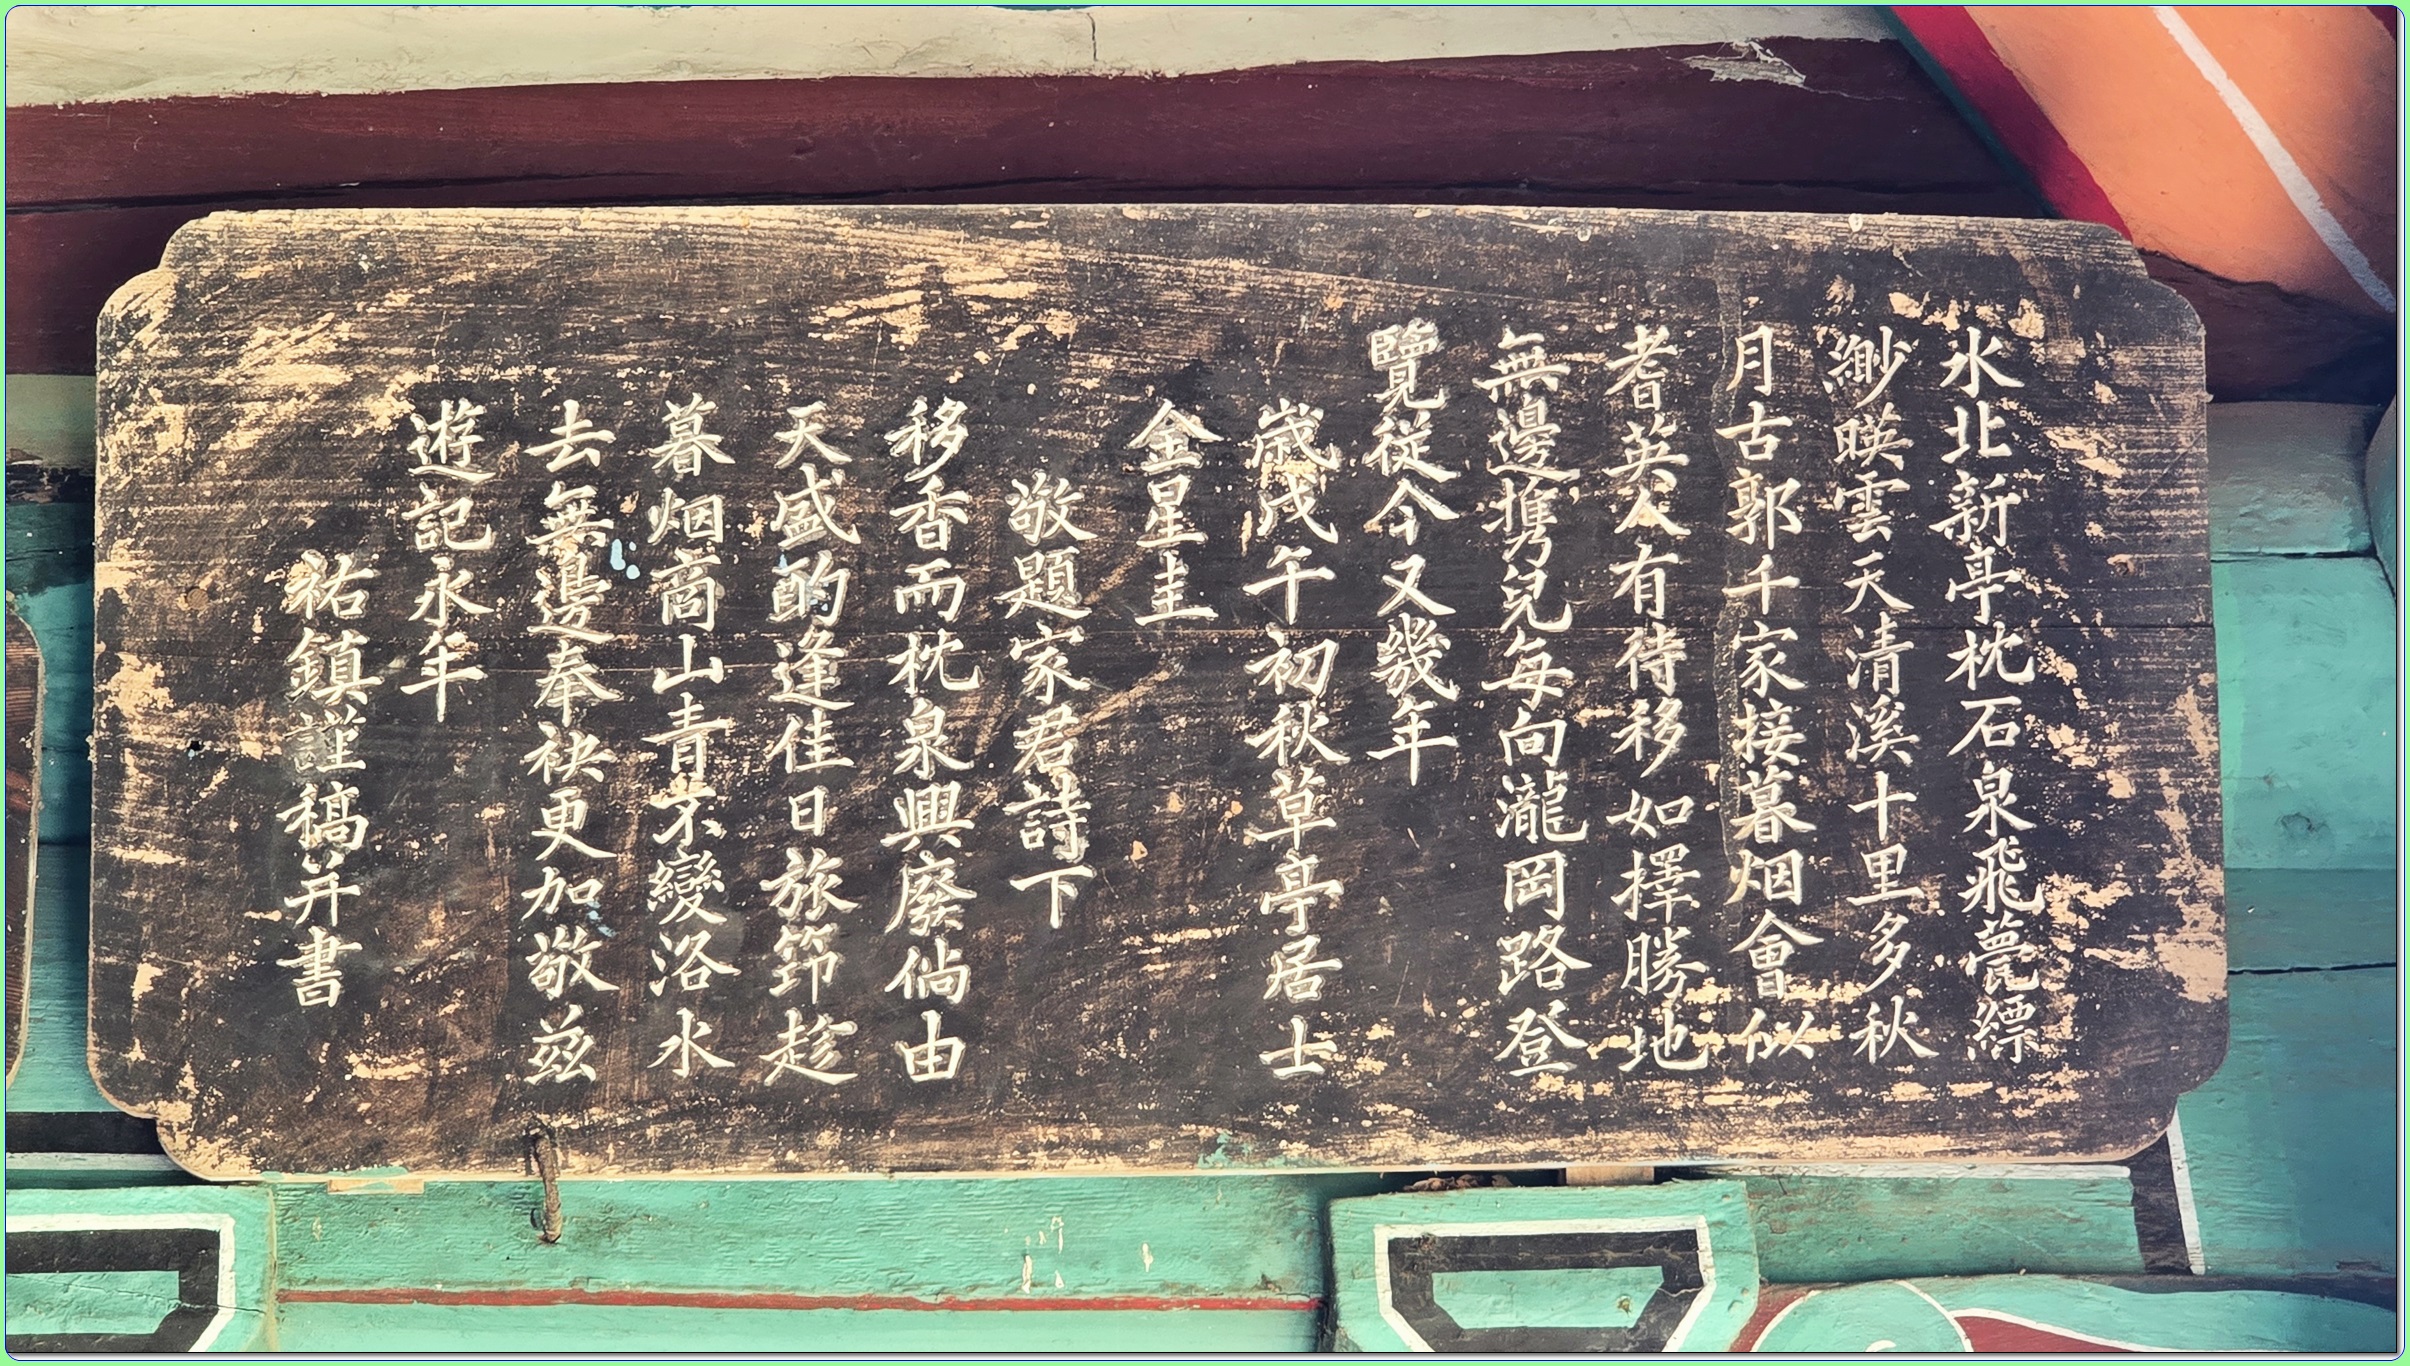 水北新亭枕石泉飛甍縹
緲暎雲天清溪十里多秋
月古郭千家接暮烟會似
耆英人有待移如擇勝地
無邊携兒每向瀧岡路登
覽從今又幾年
歲戊午初秋草亭居士
金星圭
敬題家君詩下
移香而枕泉興廢倘由
天盛酌逢佳日旅筇趁
暮烟商山青不變洛水
去無邊奉袂更加敬茲
遊記永年
祐鎮謹稿并書